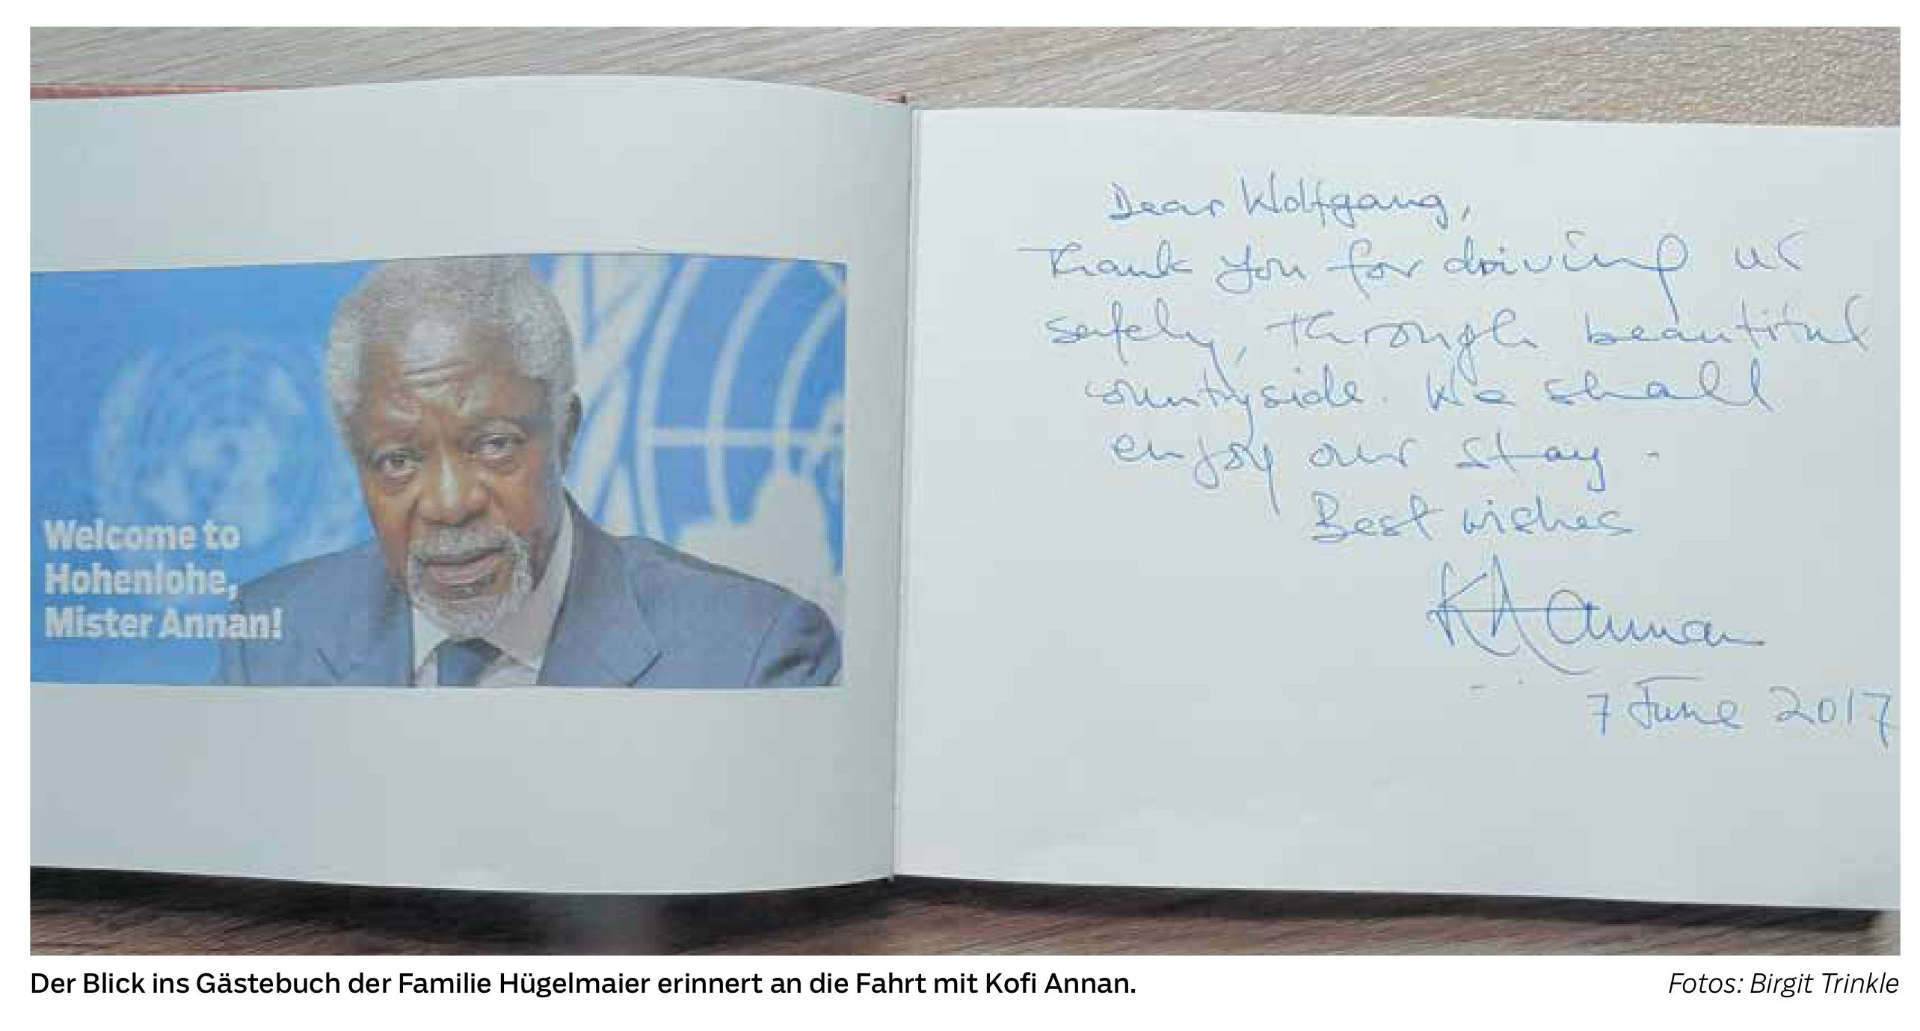 Welcome to
Hohenlohe,
Mister Annan!
Dear Wolfgang,
Thank you for driving us
safely, through beautiful
countryside. We shall
enjoy our stay.
Best wishes
KA Annan
7 June 2017
Der Blick ins Gästebuch der Familie Hügelmaier erinnert an die Fahrt mit Kofi Annan.
Fotos: Birgit Trinkle